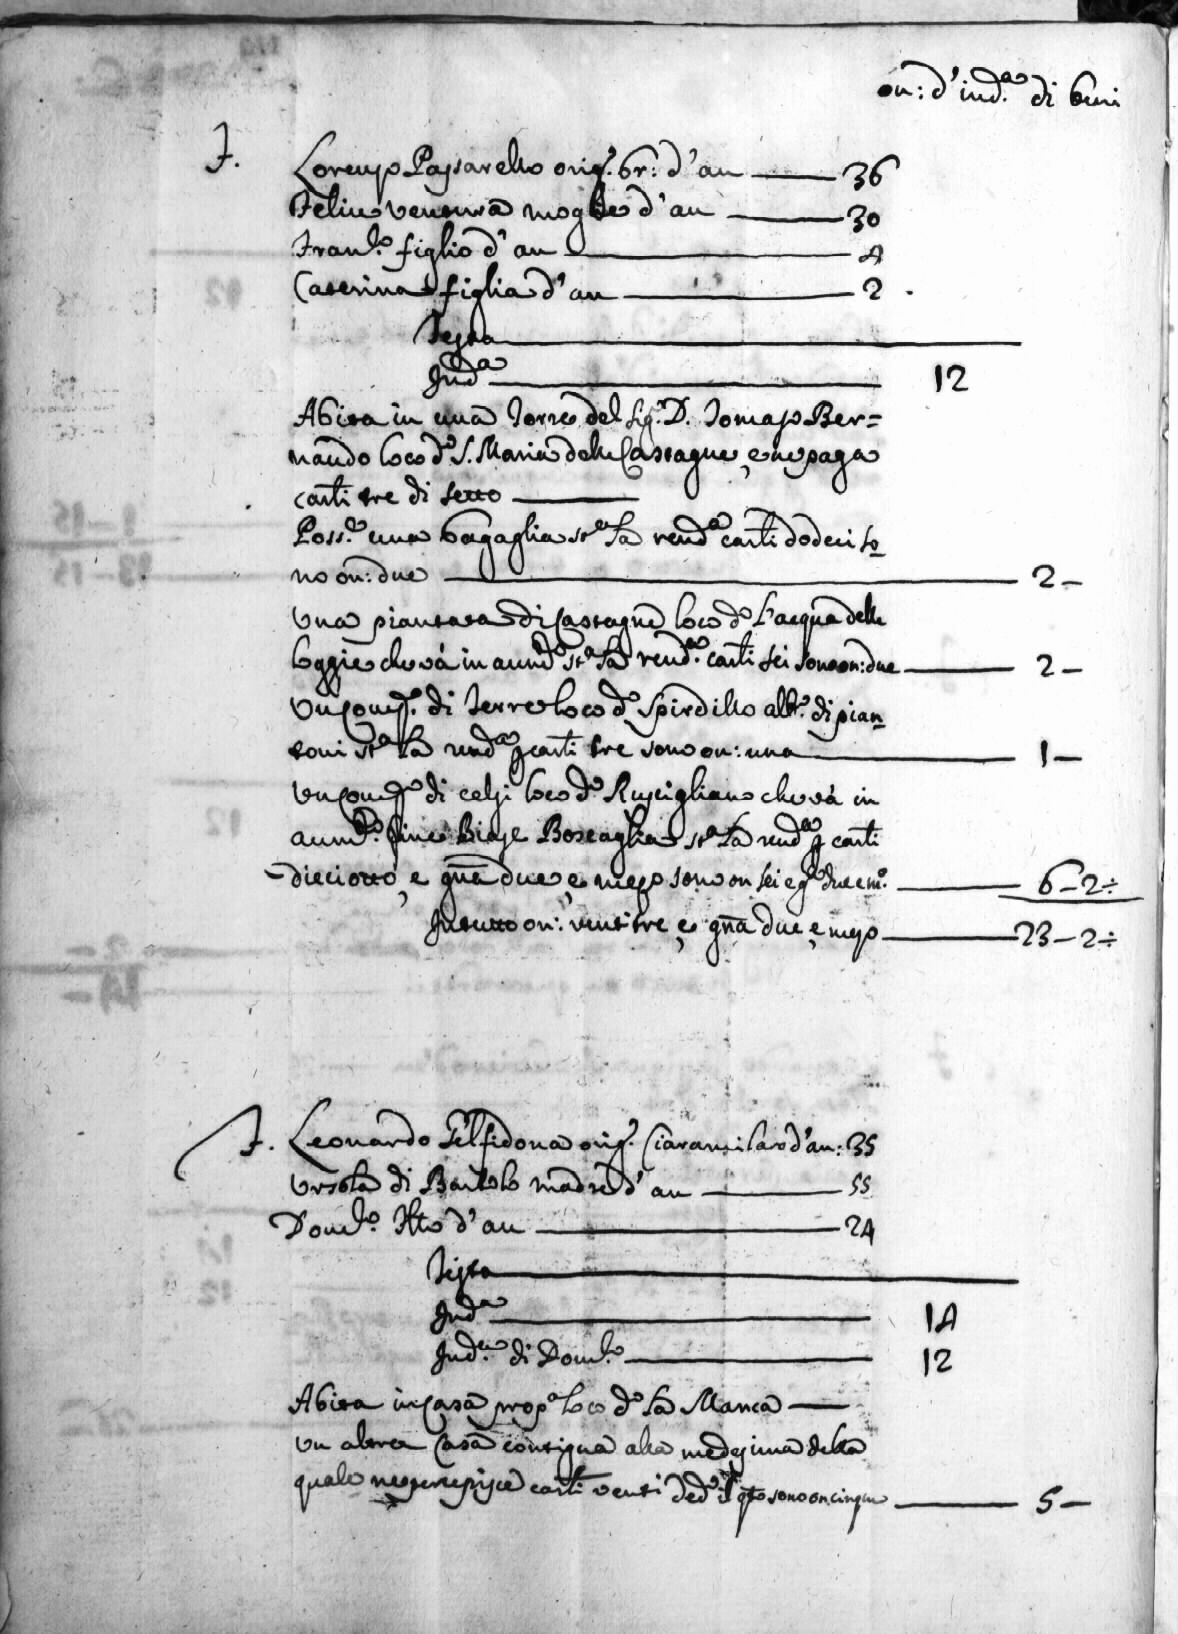 on: d'ind.a di beni
F. Lorenzo Passarello orig.° br: d'an 36
Felice Ventura moglie d'an 30
Fran.co figlio d'an 4
Caterina figlia d'an 2
Testa
Ind.a 12
Abita in una Torre del Sig.r D. Tomaso Ber=
naudo loco d.o S. Maria delle Castagne, e ne paga
carli tre di setto
Poss.e una bagaglia st.a la rend.a carli dodeci so
no on: due 2 –
Una piantata di Castagne loco d.o l'acqua delle
loggie che và in ann.o st.a la rend.a carli sei sono on: due 2 –
Un di Terre loco d.o Spirdillo alb.o di pian
toni st.a la rend.a p carli tre sono on: una 1 –
Un di celzi loco d.o Ruscigliano che và in
ann.o fine Biase Boscaglia st.a la rend.a p carli
dieciotto, e gna due, e mezo sono on sei e g.a due e m.o 6 – 2 ÷
In tutto on: venti tre, e gna due e mezo 23 – 2 ÷
F. Leonardo orig.° d'an: 35
Ursola di Bartolo madre d'an 55
Dom.co f'tto d'an 24
Testa
Ind.a 14
Ind.a di Dom.co 12
Abita in Casa prop.a loco d.o la Manca
Un altra Casa contigua alla medesima della
quale ne percepisce carli venti ded.o il qto sono on cinque 5 –